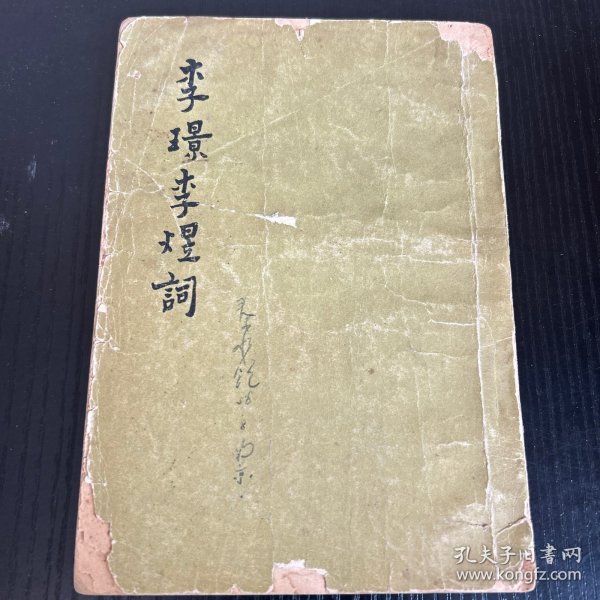 李璟李煜詞
南京.
孔夫子旧书网
www.kongfz.com